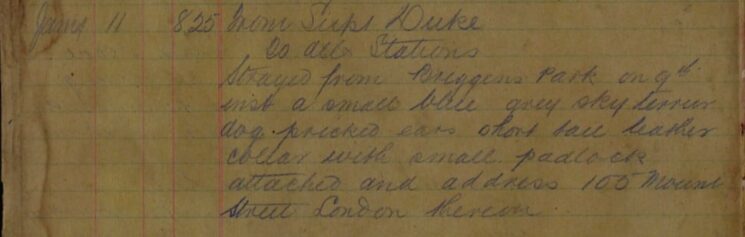 Jany 11 825 From Supt Duke
to all Stations
Strayed from Briggens Park on 9th
inst a small blue grey sky terrier
dog pricked ears short tail leather
collar with small padlock
attached and address 105 Mount
Street London thereon